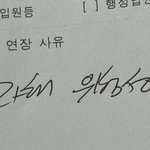 입원등 [ ] 행정입
연장 사유
자해 위험성